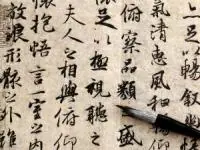 以暢敘
氣清惠風和暢
俯察品類之盛
懷足以極視聽之
夫人之相與俯仰
懷抱悟言一室之內
放浪形骸之外雖